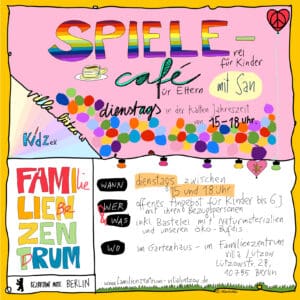 SPIELE-
rei
für Kinder
café
für Eltern
mit San
dienstags
in der kalten Jahreszeit
von 15-18 Uhr
villa lützow
Kidz
FAMilie
LIEBE
ZEN
DRUM
WANN
dienstags zwischen
15 und 18 Uhr
WER
WAS
offenes Angebot für Kinder bis 6J
mit ihren Bezugspersonen
inkl. Bastelei mit Naturmaterialien
und unseren öko-Buffets
WO
im Gartenhaus - im Familienzentrum
Villa Lützow
Lützowstr. 28,
10785 Berlin
www.familienzentrum-villalutzow.de
BERLIN